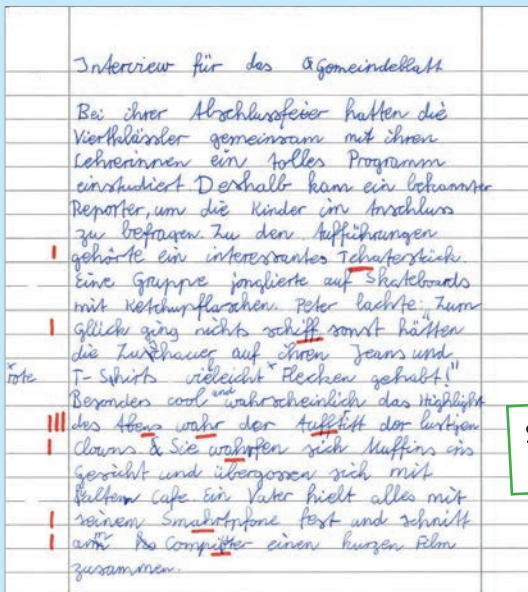 Interview für das Gomeindeblatt
Bei ihrer Abschlussfeier hatten die
Viertklässler gemeinsam mit ihren
Lehrerinnen ein tolles Programm
einstudiert. Deshalb kam ein bekannter
Reporter, um die Kinder im Anschluss
zu befragen. Zu den Aufführungen
gehörte ein interessantes Tehaterstück.
Eine Gruppe jonglierte auf Skateboards
mit Ketchupflaschen. Peter lachte: „Zum
Glück ging nichts schiff sonst hätten
die Zuschauer auf ihren Jeans und
rote T-Shirts vieleicht Flecken gehabt!"
Besonders cool und wahrscheinlich das Highlight
des Abens wahr der Aufftitt der lustigen
Clowns. Sie wahrfen sich Muffins ins
Gesicht und übergossen sich mit
kaltem Cafe Ein Vater hielt alles mit
seinem Smahrtpfone fest und schnitt
am Compiter einen kurzen Film
zusammen.